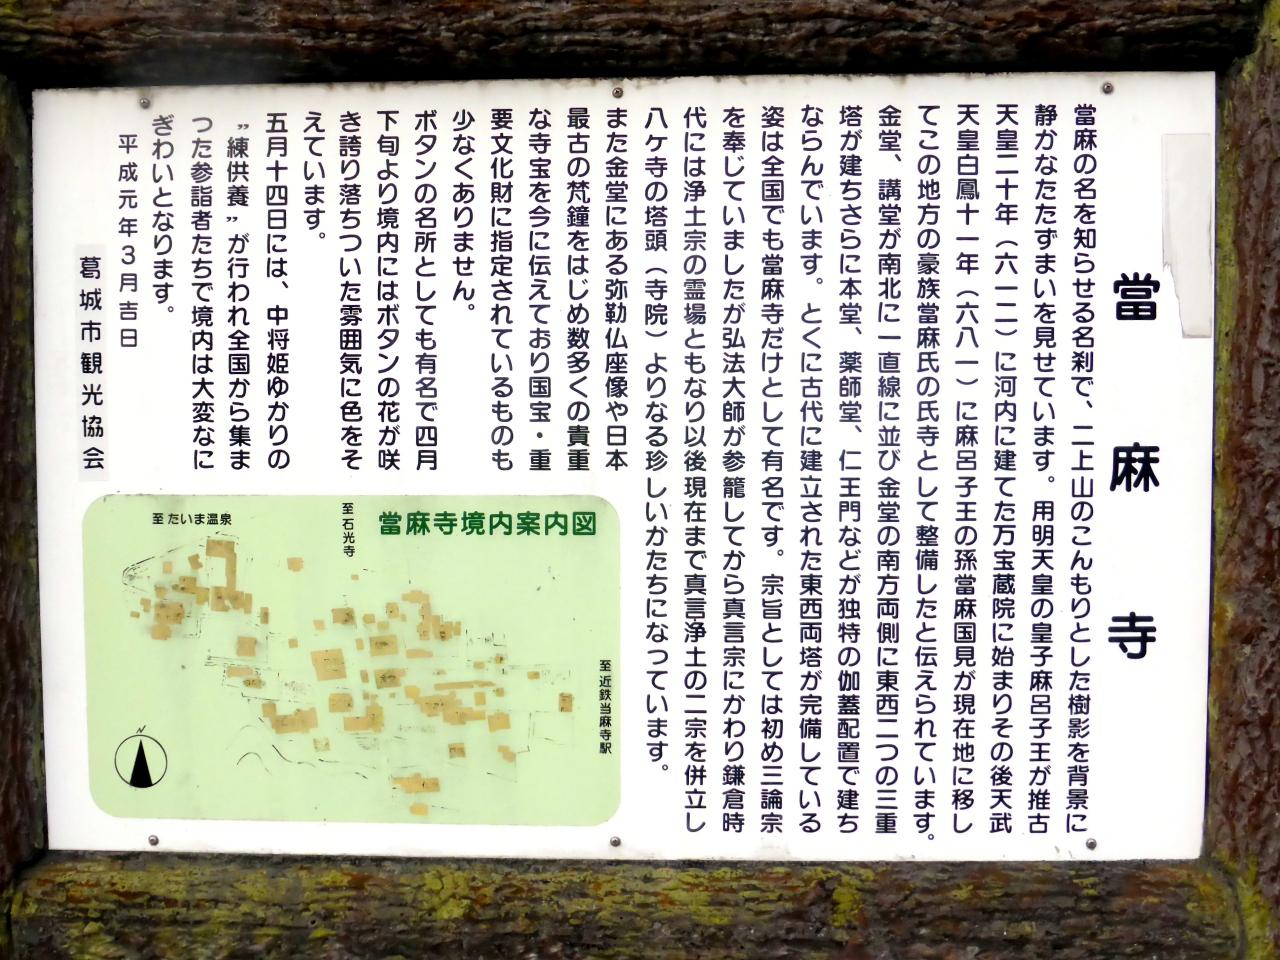 當麻寺
當麻の名を知らせる名刹で、二上山のこんもりとした樹影を背景に
静かなたたずまいを見せています。用明天皇の皇子麻呂子王が推古
天皇二十年（六一二）に河内に建てた万宝蔵院に始まりその後天武
天皇白鳳十一年（六八一）に麻呂子王の孫當麻国見が現在地に移し
てこの地方の豪族當麻氏の氏寺として整備したと伝えられています。
金堂、講堂が南北に一直線に並び金堂の南方両側に東西二つの三重
塔が建ちさらに本堂、薬師堂、仁王門などが独特の伽蓋配置で建ち
ならんでいます。とくに古代に建立された東西両塔が完備している
姿は全国でも當麻寺だけとして有名です。宗旨としては初め三論宗
を奉じていましたが弘法大師が参籠してから真言宗にかわり鎌倉時
代には浄土宗の霊場ともなり以後現在まで真言浄土の二宗を併立し
八ケ寺の塔頭（寺院）よりなる珍しいかたちになっています。
また金堂にある弥勒仏座像や日本
最古の梵鐘をはじめ数多くの貴重
な寺宝を今に伝えており国宝・重
要文化財に指定されているものも
少なくありません。
ボタンの名所としても有名で四月
下旬より境内にはボタンの花が咲
き誇り落ちついた雰囲気に色をそ
えています。
五月十四日には、中将姫ゆかりの
〝練供養〟が行われ全国から集ま
った参詣者たちで境内は大変なに
ぎわいとなります。
平成元年３月吉日
葛城市観光協会
當麻寺境内案内図
至石光寺
至たいま温泉
至近鉄当麻寺駅
N